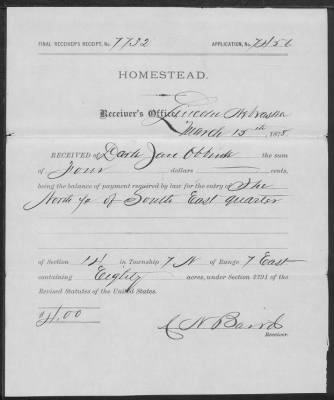 FINAL RECEIVER'S RECEIPT, No. 7732 APPLICATION, No. 7451
HOMESTEAD.
Receiver's Office, Lincoln Nebraska
March 15th, 1878
RECEIVED of Jane the sum
of Four dollars cents,
being the balance of payment required by law for the entry of The
North ½ of South East quarter
of Section 14 in Township 7 N of Range 7 East
containing Eighty acres, under Section 2291 of the
Revised Statutes of the United States.
$4.00
C N Baird
Receiver.